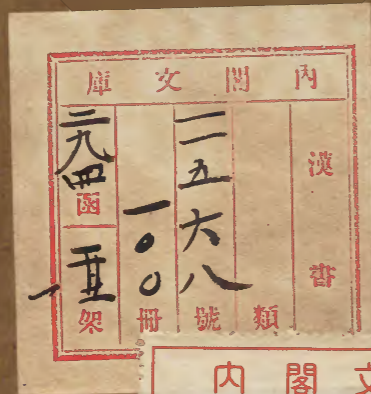 內閣文庫
漢書
類
二五六八號
一〇〇冊
二九四函
架
内閣文